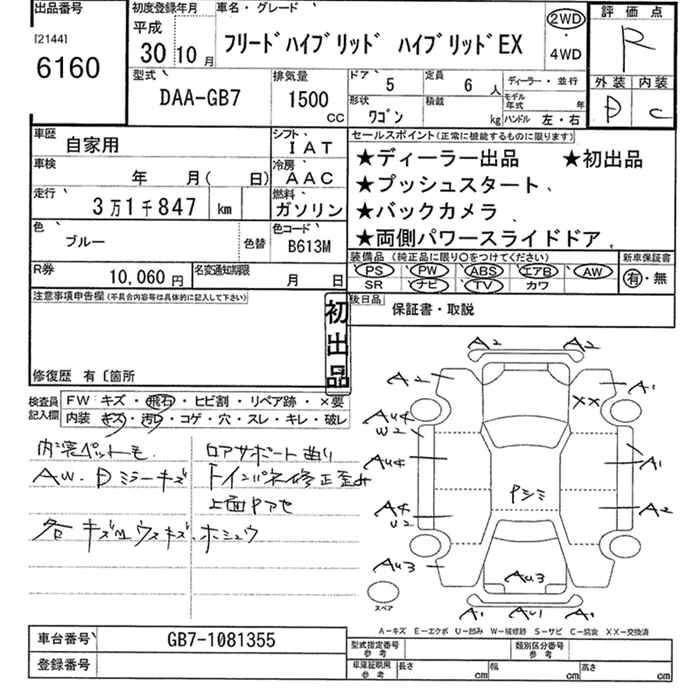 出品番号
[2144]
6160
初度登録年月
平成
30 10 月
車名・グレード
フリードハイブリッド ハイブリッドEX
2WD
・
4WD
評価点
R
外装 内装
D C
型式
DAA-GB7
排気量
1500
CC
ドア
5
定員
6 人
形状
ワゴン
積載
kg
ディーラー・並行
モデル年式
年
ハンドル 左・右
車歴
自家用
シフト
IAT
車検
年 月( 日)
冷房
AAC
走行
3万1千847 km
燃料
ガソリン
色
ブルー
色替
色コード
B613M
R券
10,060 円
名変通知期限
月 日
セールスポイント(正常に機能するものに限ります)
★ディーラー出品 ★初出品
★プッシュスタート
★バックカメラ
★両側パワースライドドア
装備品(純正品に限り○をつけてください)
PS PW ABS エアB AW
SR ナビ TV カワ
新車保証書
有・無
後日品
保証書・取説
注意事項申告欄(不具合内容等は具体的に記入して下さい)
初出品
修復歴 有〔箇所
検査員
記入欄
FW キズ・飛石・ヒビ割・リペア跡・×要
内装 キズ・汚れ・コゲ・穴・スレ・キレ・破レ
内装ペット毛
AW.Dミラーキズ
各キズM ウスキズ.ホシュウ
ロアサポート曲り
トインパネ修正歪み
上面Pアセ
A2 A2
A2 A1
XX
AU4
W2
AU4 A1
Pシミ
A4
U2
A2
AU3
AU3
A1 AU1 A1
スペア
A-キズ E-エクボ U-凹み W-補修跡 S-サビ C-腐食 XX-交換済
車台番号
GB7-1081355
登録番号
型式指定番号
参考
類別区分番号
参考
車庫証明用
参考
長さ cm 幅 cm 高さ cm